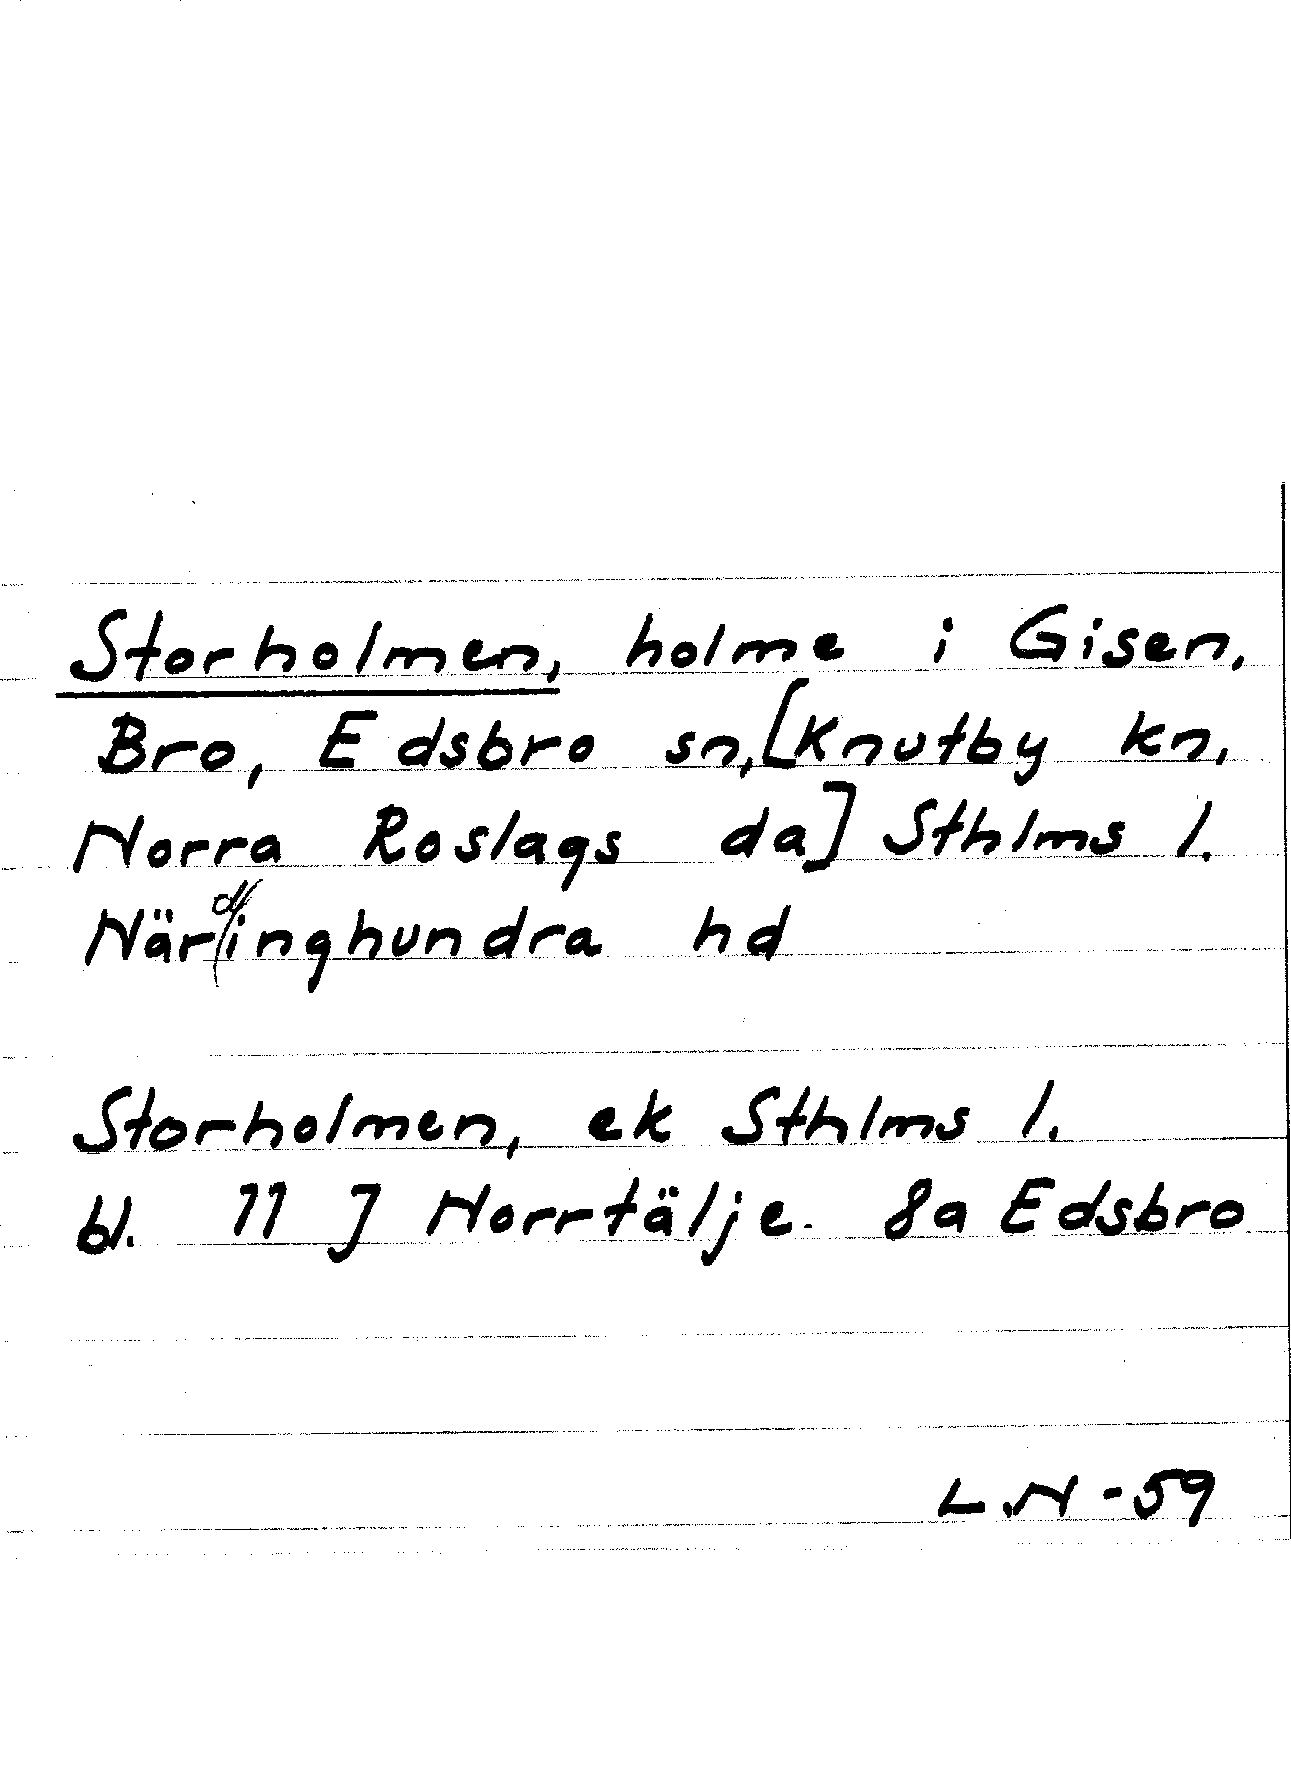 Storholmen, holme i Gisen,
Bro, Edsbro sn, [Knutby kn,
Norra Roslags da] Sthlms l.
Närdinghundra hd
Storholmen, ek Sthlms l.
bl. 11 J Norrtälje. 8a Edsbro
L.N -59